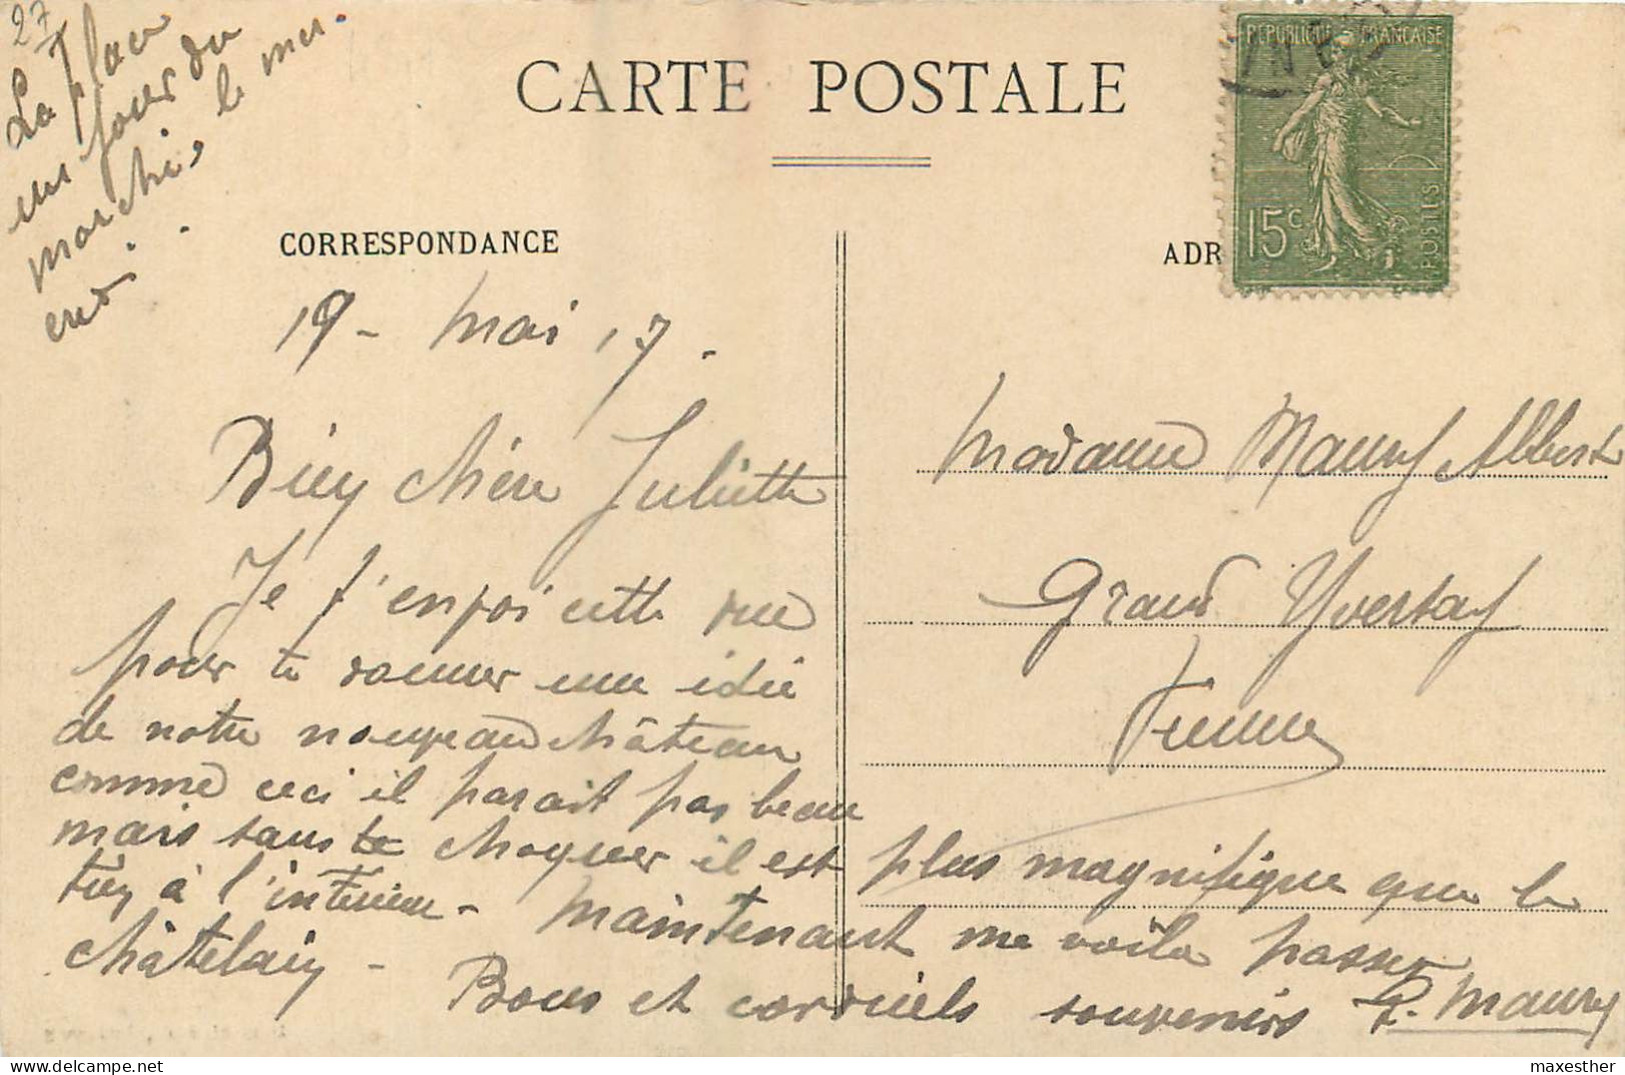 27
La place
un jour du
marché, le mer
credi.
CARTE POSTALE
RÉPUBLIQUE FRANÇAISE
15c
POSTES
CORRESPONDANCE
ADR
19 - Mai 17.
Bien chère Juliette
Je t'envoi cette vue
pour te donner une idée
de notre nouveau château
comme ceci il parait pas beau
mais sans te choquer il est plus magnifique que le
tien à l'intérieur - Maintenant me voila passer
châtelain - Bons et cordiels souvenirs P. Maury
Madame Maury Albert
Grand Yversay
Vienne
maxesther